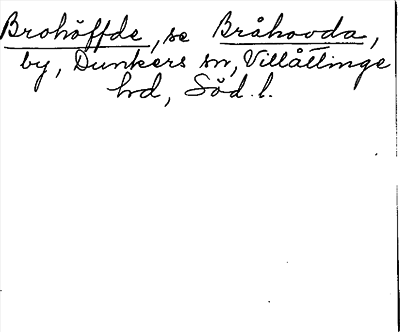 Brohöffde, se Bråhovda,
by, Dunkers sn, Villåttinge
hd, Söd. l.